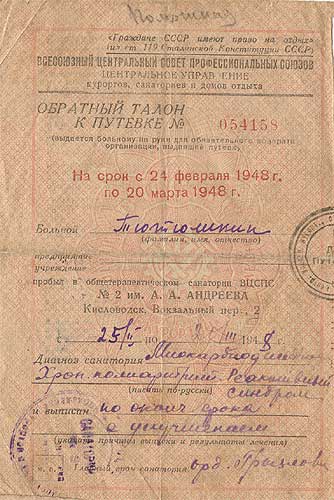 «Граждане СССР имеют право на отдых»
(из ст. 119 Сталинской Конституции СССР)
ВСЕСОЮЗНЫЙ ЦЕНТРАЛЬНЫЙ СОВЕТ ПРОФЕССИОНАЛЬНЫХ СОЮЗОВ
ЦЕНТРАЛЬНОЕ УПРАВЛЕНИЕ
курортов, санаториев и домов отдыха
ОБРАТНЫЙ ТАЛОН
К ПУТЕВКЕ № 054158
(выдается больному на руки для обязательного возврата
организации, выдавшей путевку)
На срок с 24 февраля 1948 г.
по 20 марта 1948 г.
Больной
(фамилия, имя, отчество)
предприятие
учреждение
пробыл в общетерапевтическом санатории ВЦСПС
№ 2 им. А. А. АНДРЕЕВА
Кисловодск, Вокзальный пер., 2
с 25/II по III 1948
Диагноз санатория Миокардиодистрофия
Хрон полиартрит Реактивный
синдром
(писать по-русски)
и выписан по оконч срока
с улучшением
(указать причины выписки и результаты лечения)
Главный врач санатория